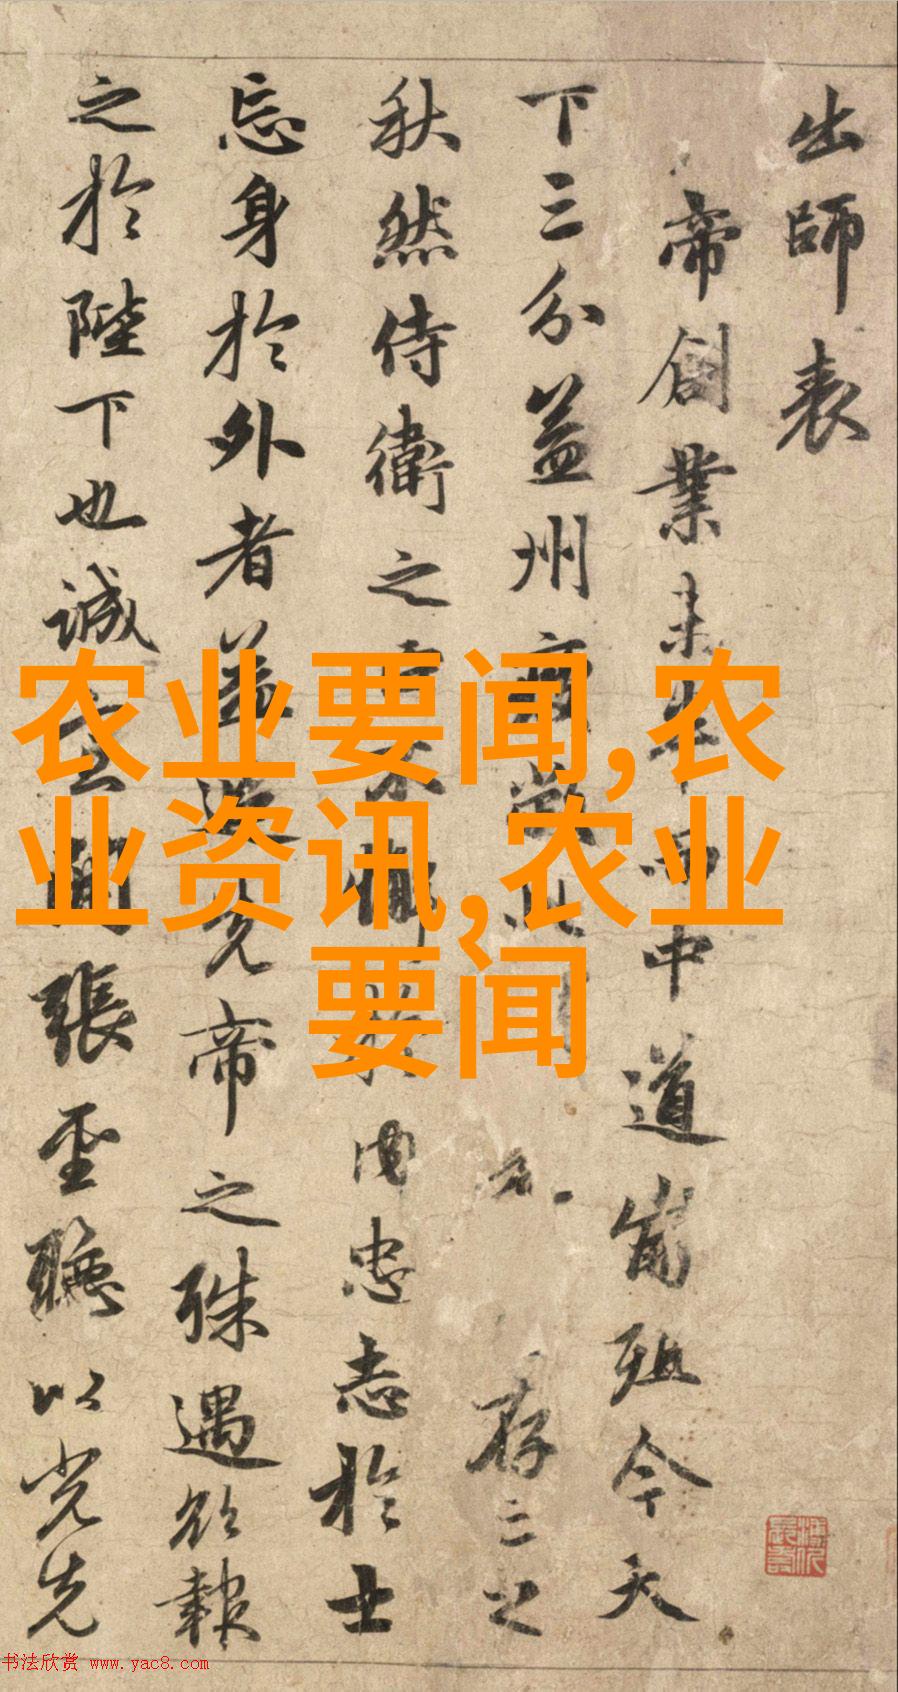 出師表
帝創業未半而中道崩殂今天
下三分益州疲敝此存亡之
秋然侍衛之臣不懈於内忠志於士
忘身於外者蓋追先帝之殊遇欲報
之於陛下也誠宜開張聖聽以光先
农业要闻,农
业资讯,农业
要闻
书法欣赏 www.yac8.com